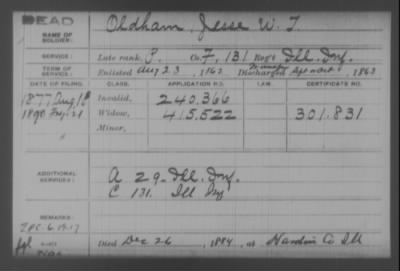 DEAD
NAME OF SOLDIER: Oldham, Jesse W. T.
SERVICE: Late rank, P. Co. F, 131 Reg't Ill. Inf.
TERM OF SERVICE: Enlisted Aug 23, 1862 Discharged, 1863
DATE OF FILING. CLASS. APPLICATION NO. LAW. CERTIFICATE NO.
1877 Aug Invalid, 240.366
1890 Widow, 415.522 301.831
Minor,
ADDITIONAL SERVICES: A 29. Ill. Inf.
C 131. Ill Inf
REMARKS:
Died Dec 26, 1884, at Hardin Co Ill